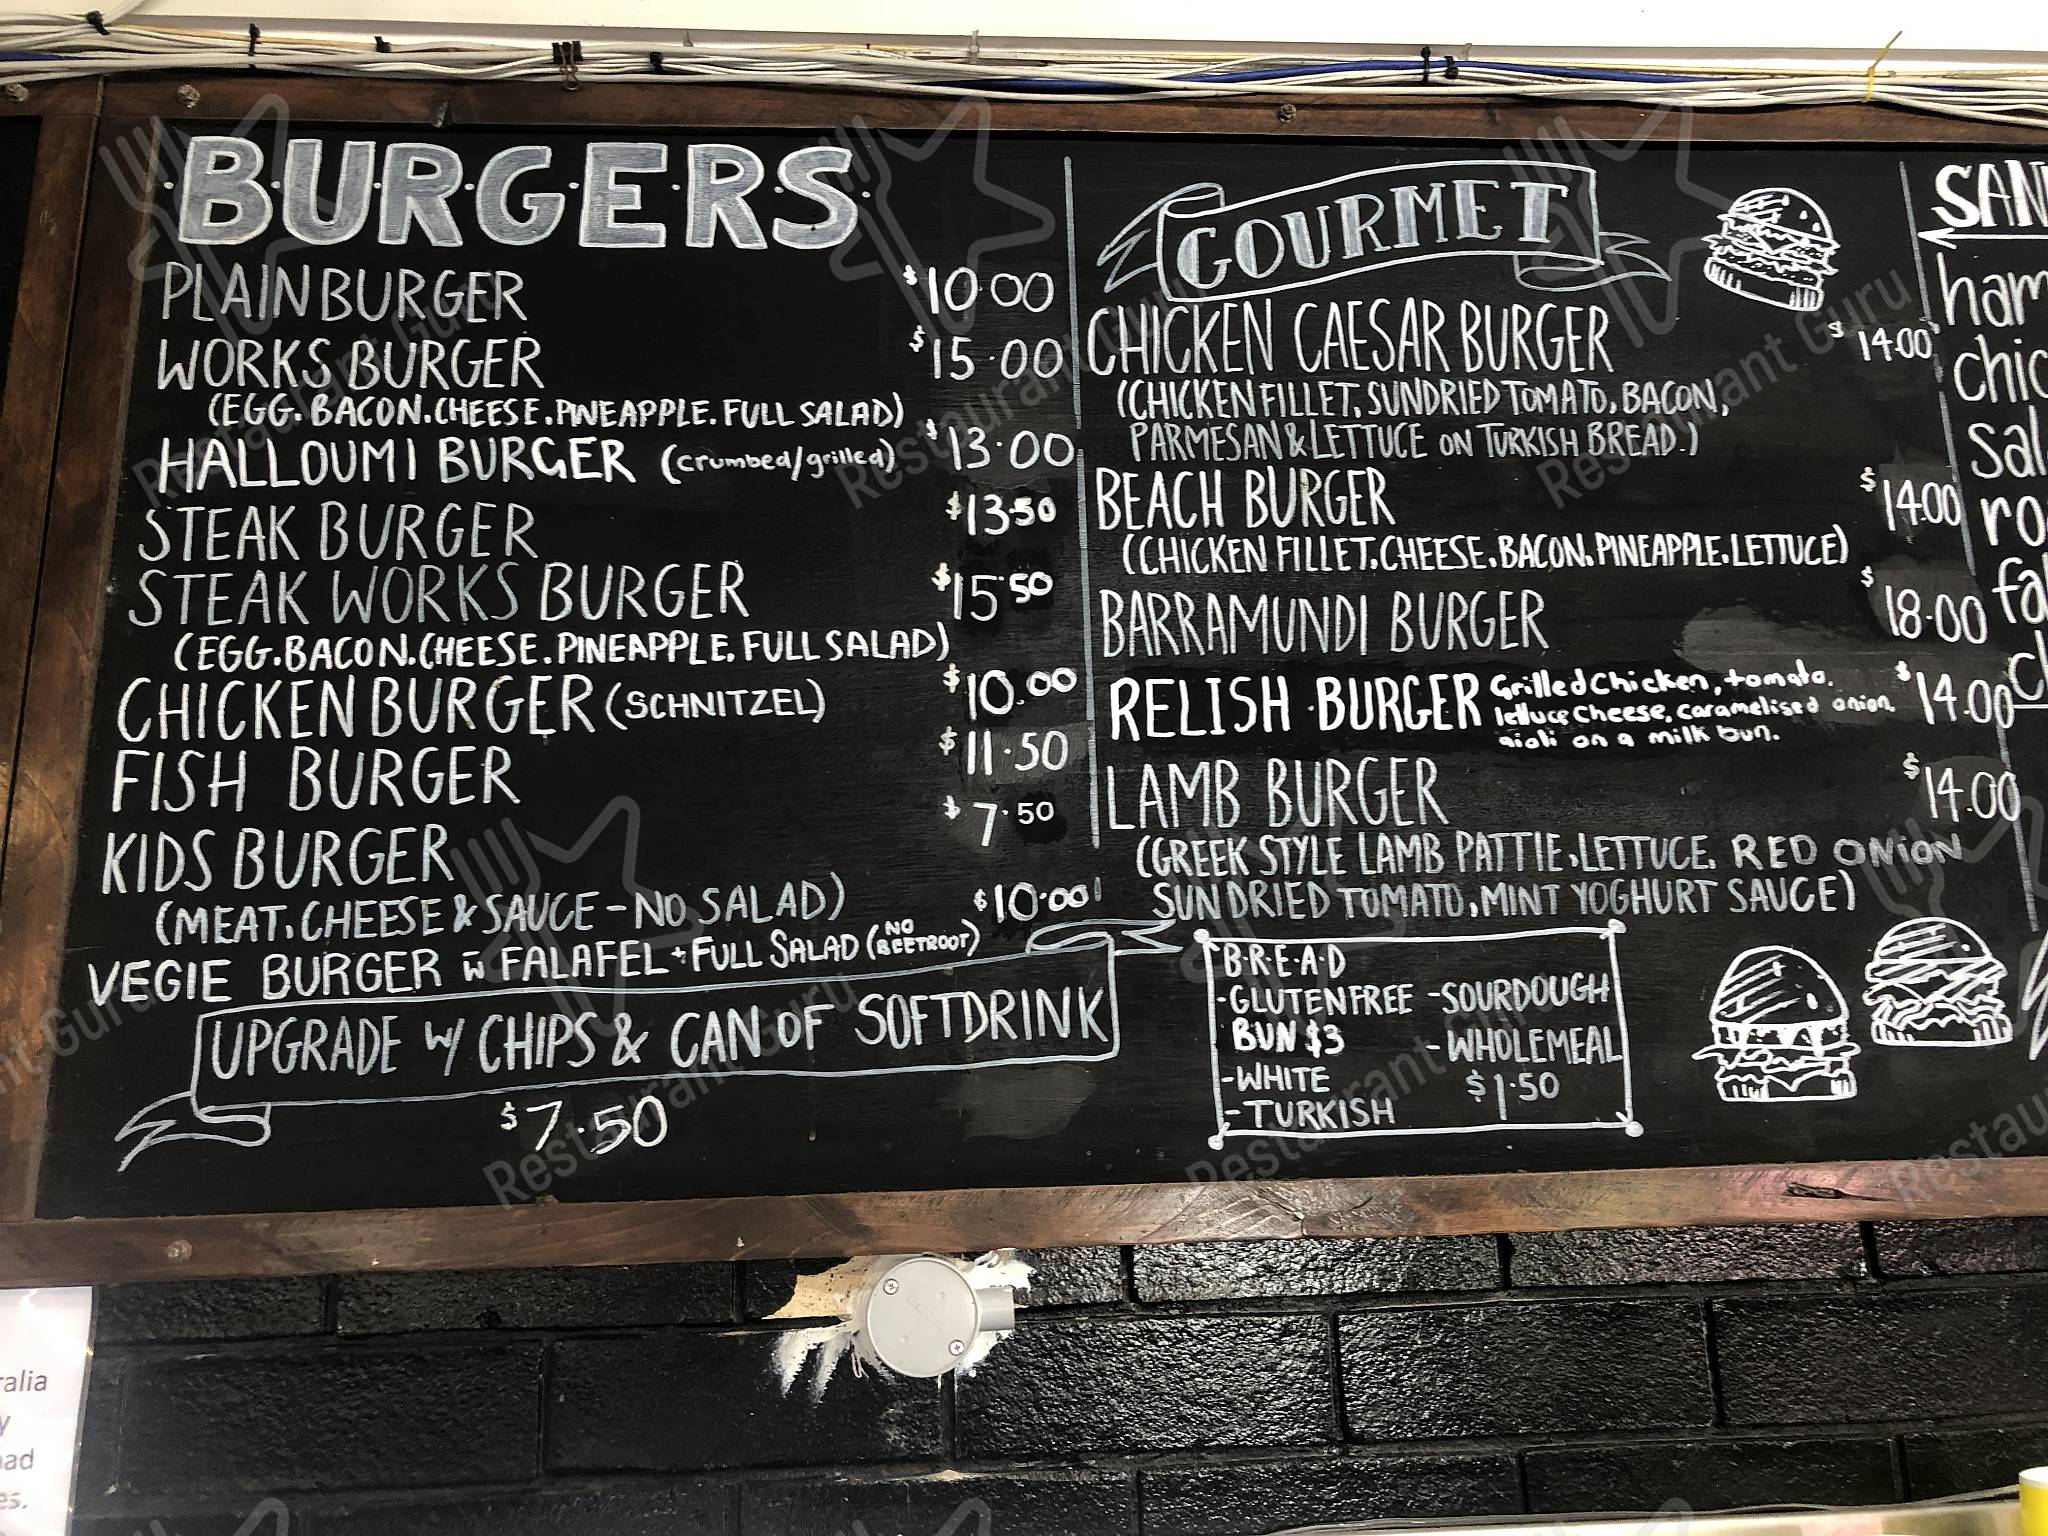 BURGERS
PLAIN BURGER $10.00
WORKS BURGER $15.00
(EGG. BACON. CHEESE. PINEAPPLE. FULL SALAD)
HALLOUMI BURGER (crumbed/grilled) $13.00
STEAK BURGER $13.50
STEAK WORKS BURGER $15.50
(EGG. BACON. CHEESE. PINEAPPLE. FULL SALAD)
CHICKEN BURGER (SCHNITZEL) $10.00
FISH BURGER $11.50
KIDS BURGER $7.50
(MEAT. CHEESE & SAUCE - NO SALAD)
VEGIE BURGER w FALAFEL + FULL SALAD (NO BEETROOT) $10.00
UPGRADE w/ CHIPS & CAN OF SOFTDRINK
$7.50
GOURMET
CHICKEN CAESAR BURGER $14.00
(CHICKEN FILLET, SUNDRIED TOMATO, BACON,
PARMESAN & LETTUCE ON TURKISH BREAD.)
BEACH BURGER $14.00
(CHICKEN FILLET. CHEESE. BACON. PINEAPPLE. LETTUCE)
BARRAMUNDI BURGER $18.00
RELISH BURGER Grilled Chicken, tomato. $14.00
lettuce cheese, caramelised onion,
aioli on a milk bun.
LAMB BURGER $14.00
(GREEK STYLE LAMB PATTIE, LETTUCE, RED ONION
SUNDRIED TOMATO, MINT YOGHURT SAUCE)
B.R.E.A.D
-GLUTENFREE -SOURDOUGH
BUN $3 -WHOLEMEAL
-WHITE $1.50
-TURKISH
Restaurant Guru